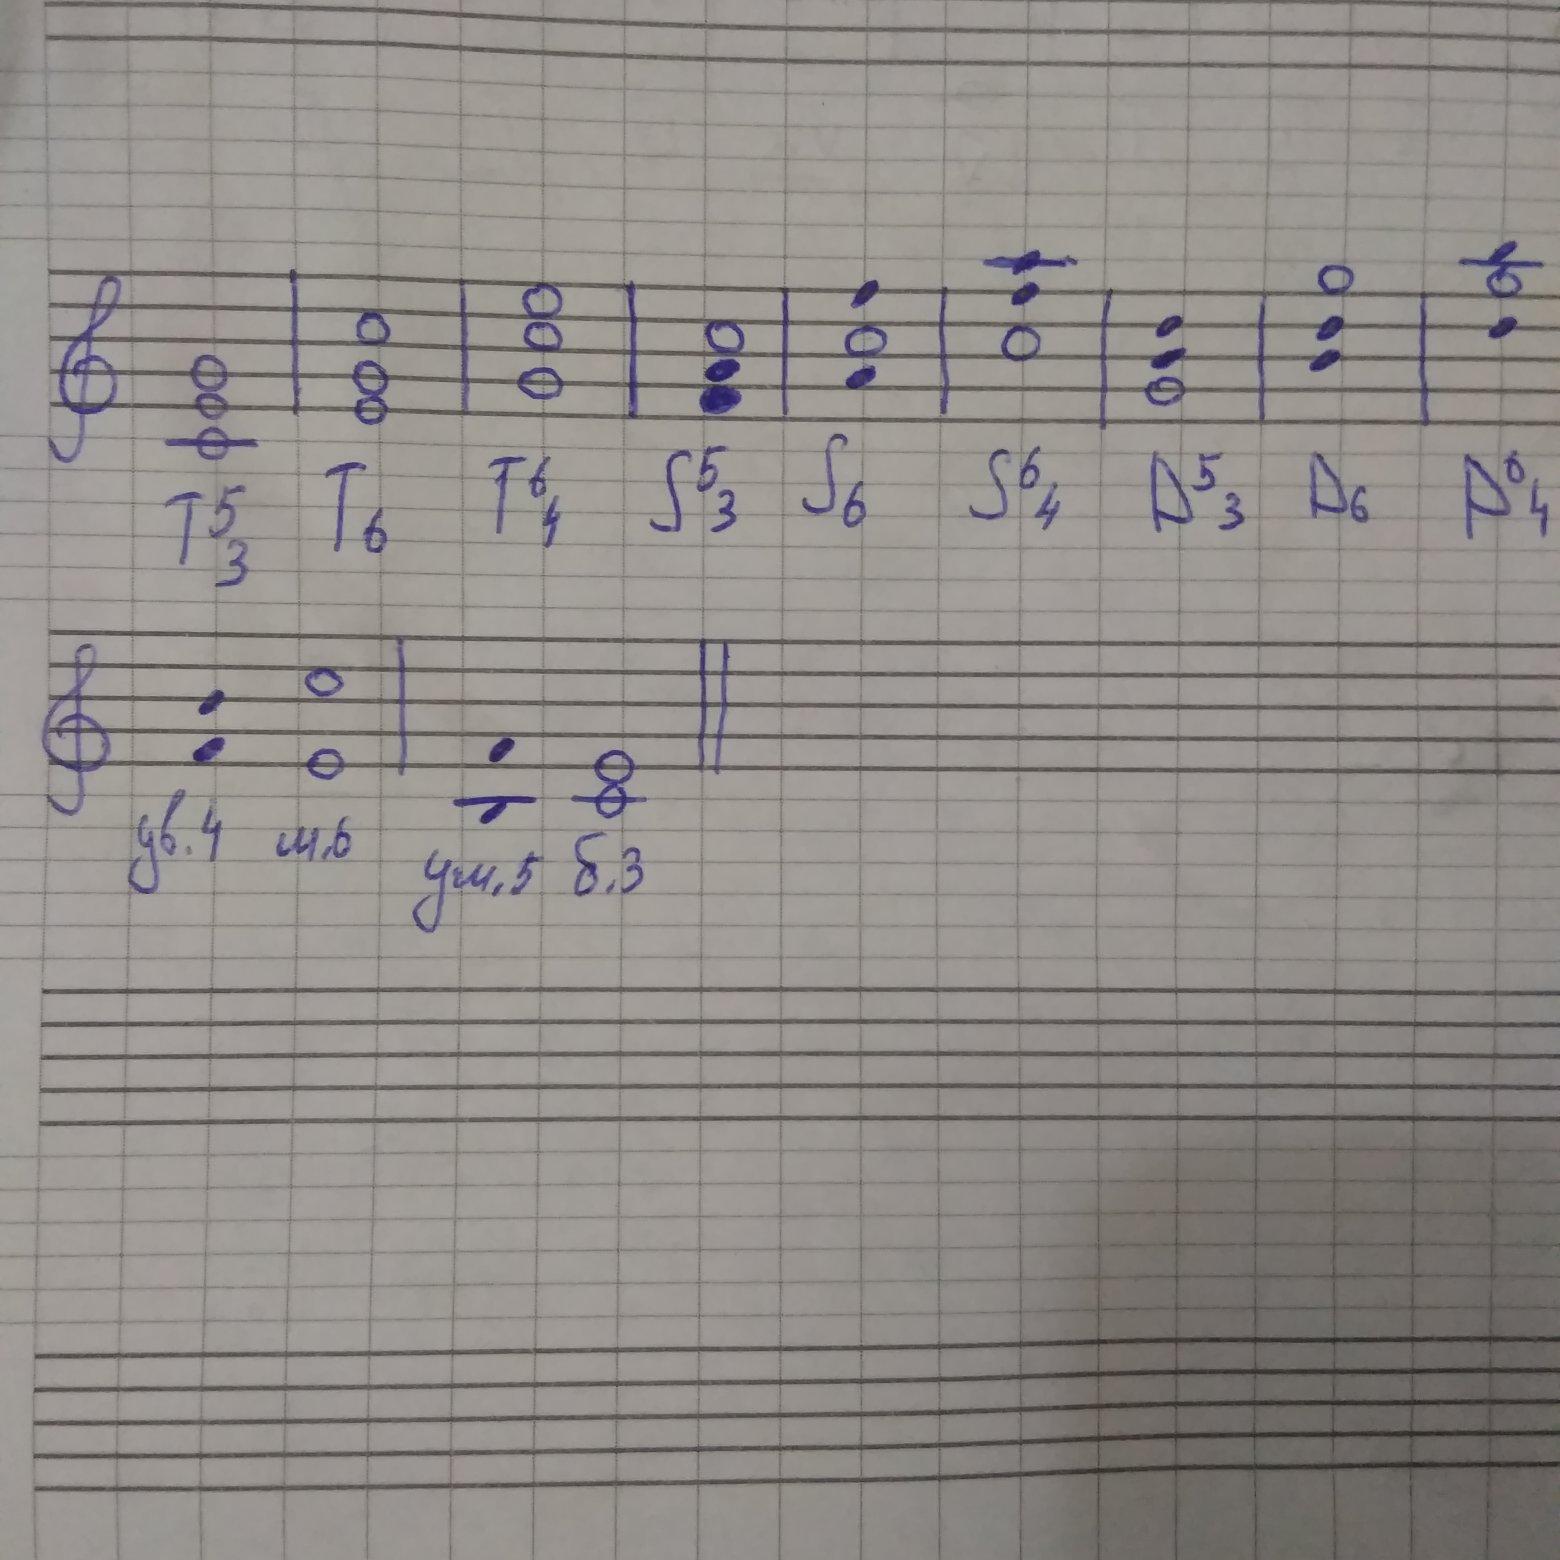 T⁵₃ T₆ T⁶₄ S⁵₃ S₆ S⁶₄ D⁵₃ D₆ D⁶₄
ув.4 м.6 ум.5 б.3